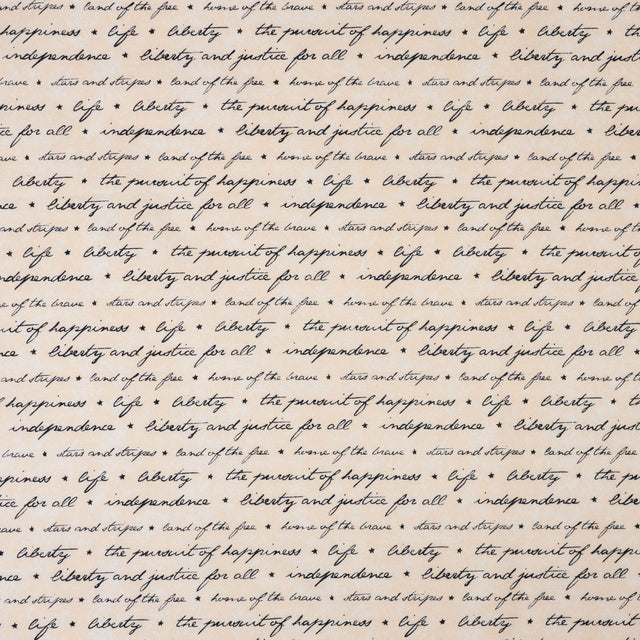 and stripes * land of the free * home of the brave * stars and stripes * land of the free * home of the
happiness * life * liberty * the pursuit of happiness * life * liberty * the
independence * liberty and justice for all * independence * liberty and just
brave * stars and stripes * land of the free * home of the brave * stars and stripes * land of the free
happiness * life * liberty * the pursuit of happiness * life * liberty * the
for all * independence * liberty and justice for all * independence *
stars and stripes * land of the free * home of the brave * stars and stripes * land of the free *
liberty * the pursuit of happiness * life * liberty * the pursuit of
* liberty and justice for all * independence * liberty and justice for all *
and stripes * land of the free * home of the brave * stars and stripes * land of the free * home
* life * liberty * the pursuit of happiness * life * liberty * the pursuit
independence * liberty and justice for all * independence * liberty and justice
of the brave * stars and stripes * land of the free * home of the brave * stars and stripes * land of
of happiness * life * liberty * the pursuit of happiness * life * liberty
* liberty and justice for all * independence * liberty and justice for all
and stripes * land of the free * home of the brave * stars and stripes * land of the free * home of
happiness * life * liberty * the pursuit of happiness * life * liberty * the
independence * liberty and justice for all * independence * liberty and justice
brave * stars and stripes * land of the free * home of the brave * stars and stripes * land of the free
happiness * life * liberty * the pursuit of happiness * life * liberty * the
for all * independence * liberty and justice for all * independence *
stars and stripes * land of the free * home of the brave * stars and stripes * land of the free
liberty * the pursuit of happiness * life * liberty * the pursuit of
* liberty and justice for all * independence * liberty and justice for all
and stripes * land of the free * home of the brave * stars and stripes * land of the free * home
* life * liberty * the pursuit of happiness * life * liberty * the pursuit